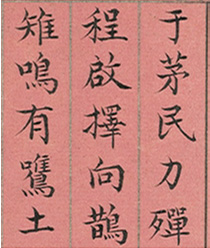 于茅民力殫
程啟擇向鵲
雉鳴有鷕土